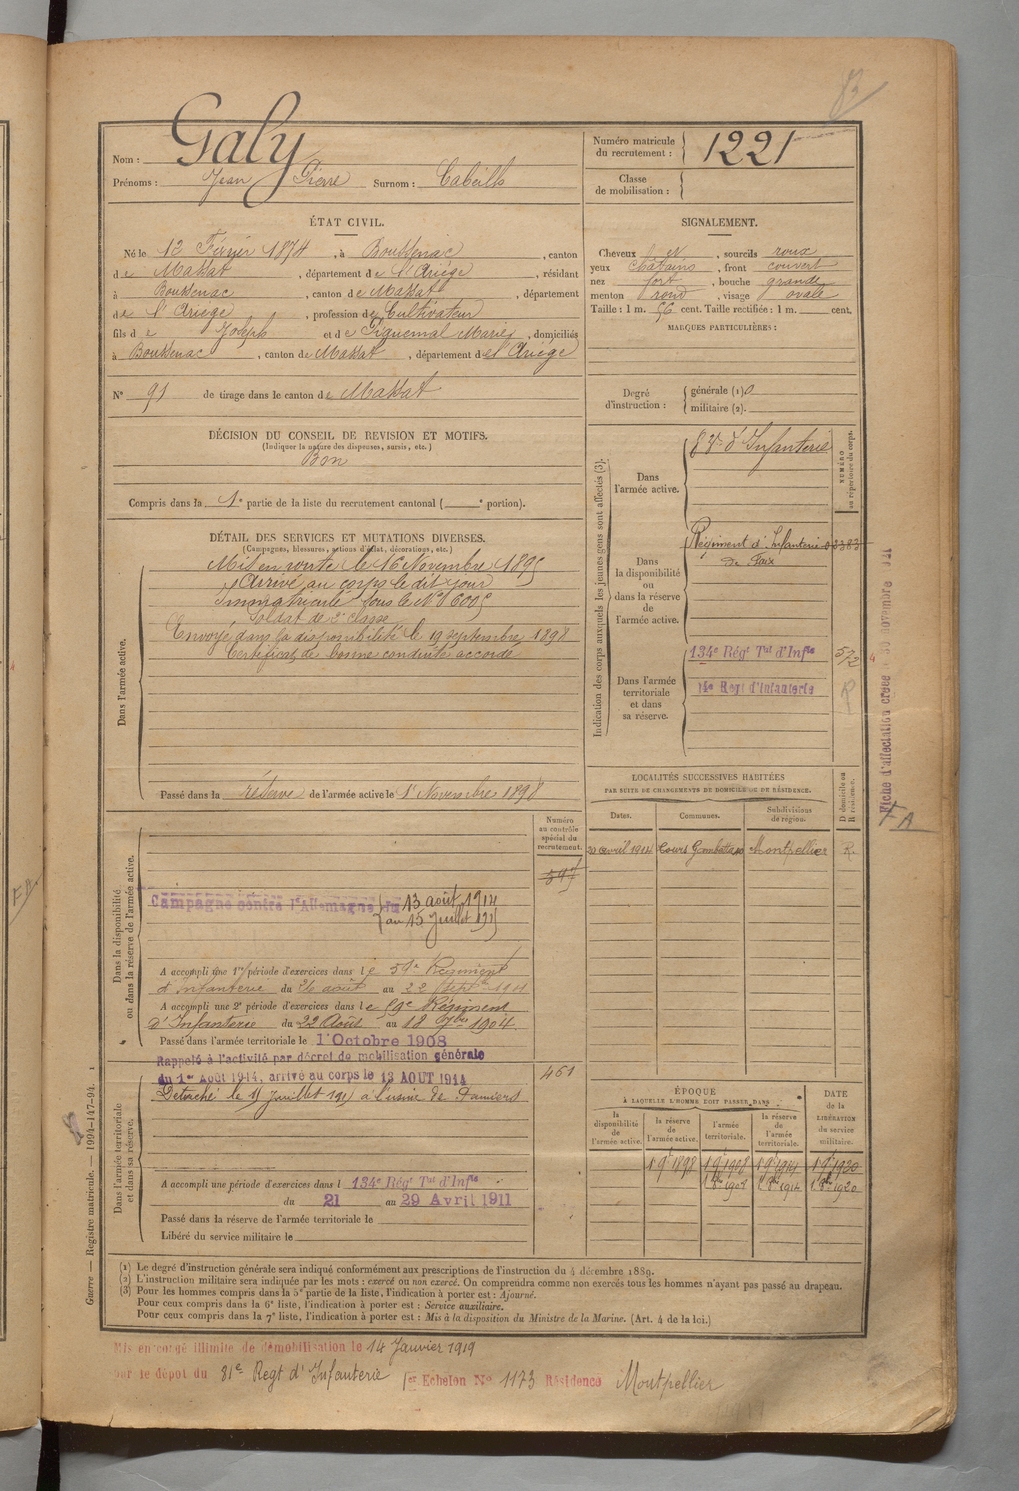 Nom : Galy
Prénoms : Jean Pierre Surnom : Cabeills
Numéro matricule du recrutement : 1221
Classe de mobilisation :
ÉTAT CIVIL.
Né le 12 Février 1874, à Boussenac, canton
de Massat, département de l'Ariège, résidant
à Boussenac, canton de Massat, département
de l'Ariège, profession de Cultivateur
fils de Joseph et de Piquemal Marie, domiciliés
à Boussenac, canton de Massat, département de l'Ariège
N° 91 de tirage dans le canton de Massat
SIGNALEMENT.
Cheveux et, sourcils roux
yeux châtains, front couvert
nez fort, bouche grande
menton rond, visage ovale
Taille : 1 m. 56 cent. Taille rectifiée : 1 m. cent.
MARQUES PARTICULIÈRES :
Degré d'instruction :
générale (1) 0
militaire (2).
DÉCISION DU CONSEIL DE REVISION ET MOTIFS.
(Indiquer la nature des dispenses, sursis, etc.)
Bon
Compris dans la 1e partie de la liste du recrutement cantonal ( e portion).
DÉTAIL DES SERVICES ET MUTATIONS DIVERSES.
(Campagnes, blessures, actions d'éclat, décorations, etc.)
Dans l'armée active.
Mis en route le 16 Novembre 1895
Arrivé au corps le dit jour
Immatriculé sous le N° 6005
Soldat de 2e classe
Envoyé dans la disponibilité le 19 septembre 1898
Certificat de bonne conduite accordé
Passé dans la réserve de l'armée active le 1r Novembre 1898
Indication des corps auxquels les jeunes gens sont affectés (3).
NUMÉRO au répertoire du corps.
Dans l'armée active.
d'Infanterie
Dans la disponibilité ou dans la réserve de l'armée active.
Régiment d'Infanterie 02383
de Foix
Dans l'armée territoriale et dans sa réserve.
134e Régt Tal d'Infie 572
Regt d'Infanterie R
Fiche d'affectation créée le 30 novembre
LOCALITÉS SUCCESSIVES HABITÉES
PAR SUITE DE CHANGEMENTS DE DOMICILE OU DE RÉSIDENCE.
Dates. Communes. Subdivisions de région. D domicile ou R résidence.
20 avril 1914 Cours Gambetta Montpellier R.
Dans la disponibilité ou dans la réserve de l'armée active.
Numéro au contrôle spécial du recrutement.
Campagne contre l'Allemagne du 13 août 1914
au 15 Juillet 1915
A accompli une 1re période d'exercices dans le 59e Régiment
d'Infanterie du 26 août au 22 Septbre 1901
A accompli une 2e période d'exercices dans le 59e Régiment
d'Infanterie du 22 Août au 18 7bre 1904.
Passé dans l'armée territoriale le 1 Octobre 1908
Rappelé à l'activité par décret de mobilisation générale
du 1er Août 1914, arrivé au corps le 13 AOUT 1914
461
Dans l'armée territoriale et dans sa réserve.
Détaché le 15 Juillet 1915 à l'usine de Pamiers
A accompli une période d'exercices dans l 134e Régt Tal d'Infie
du 21 au 29 Avril 1911
Passé dans la réserve de l'armée territoriale le
Libéré du service militaire le
ÉPOQUE
À LAQUELLE L'HOMME DOIT PASSER DANS
la disponibilité de l'armée active. la réserve de l'armée active. l'armée territoriale. la réserve de l'armée territoriale. DATE de la LIBÉRATION du service militaire.
1 9e 1898 1 9e 1908 1 9e 1914 1 9e 1920
1 8bre 1908 1 8bre 1914 1 8bre 1920
Guerre — Registre matricule. — 1994-147-94.
(1) Le degré d'instruction générale sera indiqué conformément aux prescriptions de l'instruction du 4 décembre 1889.
(2) L'instruction militaire sera indiquée par les mots : exercé ou non exercé. On comprendra comme non exercés tous les hommes n'ayant pas passé au drapeau.
(3) Pour les hommes compris dans la 5e partie de la liste, l'indication à porter est : Ajourné.
Pour ceux compris dans la 6e liste, l'indication à porter est : Service auxiliaire.
Pour ceux compris dans la 7e liste, l'indication à porter est : Mis à la disposition du Ministre de la Marine. (Art. 4 de la loi.)
Mis en congé illimité de démobilisation le 14 Janvier 1919
par le dépôt du 81e Regt d'Infanterie 1er Echelon N° 1173 Résidence Montpellier